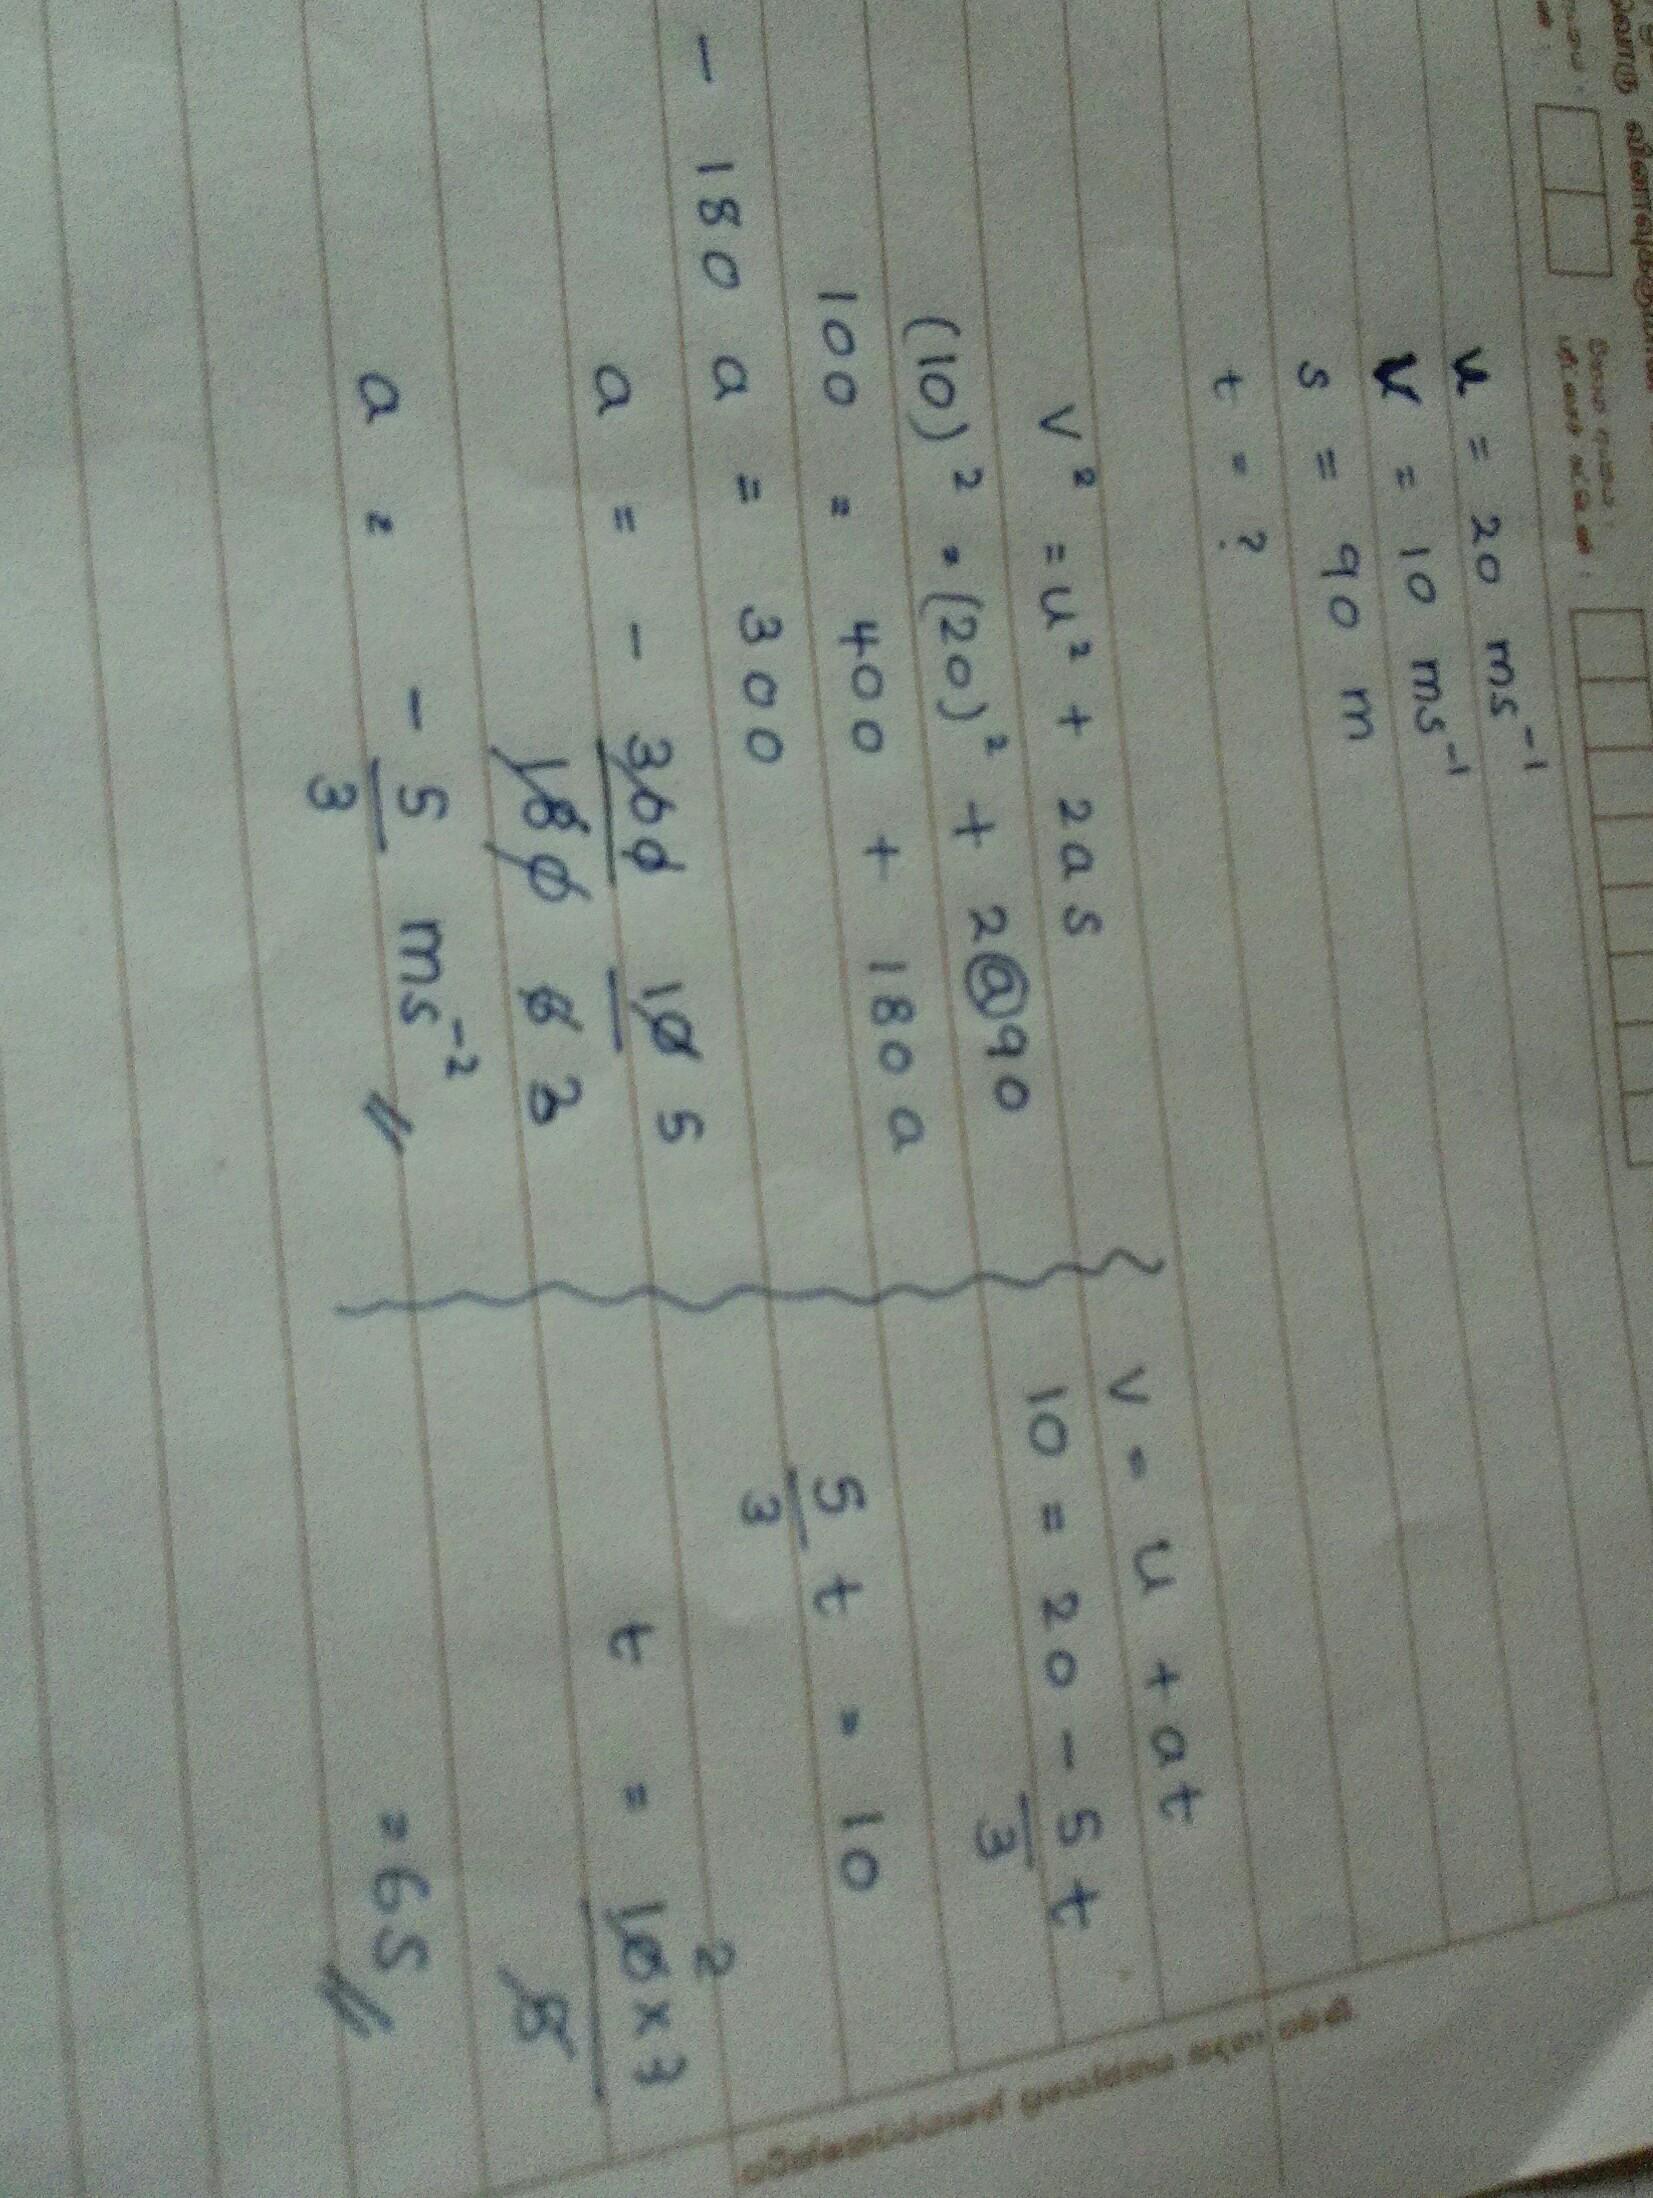 u = 20 ms⁻¹
v = 10 ms⁻¹
s = 90 m
t = ?
v² = u² + 2as
(10)² = (20)² + 2@90
100 = 400 + 180a
- 180a = 300
a = - 300/180 10/6 5/3
a = - 5/3 ms⁻²
v = u + at
10 = 20 - 5/3 t
5/3 t = 10
t = 10 2 × 3 / 5
= 6s